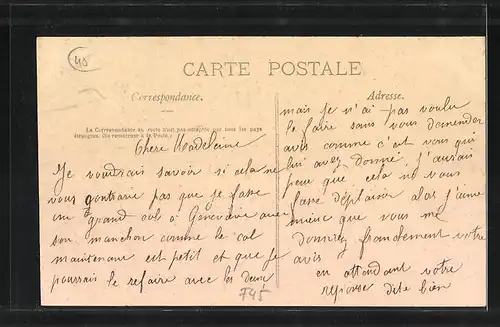 40
CARTE POSTALE
Correspondance.
Adresse.
La Correspondance au recto n'est pas acceptée par tous les pays
étrangers. (Se renseigner à la Poste.)
Chere Madeleine
Je voudrais savoir si cela ne
vous contrarie pas que je fasse
un grand col à Geneviève avec
son manchon comme le col
maintenant est petit et que je
pourrais le refaire avec les deux
mais je n'ai pas voulu
le faire sans vous demander
avis comme c'est vous qui
lui avez donné. J'aurais
peur que cela ne vous
fasse déplaisir alor j'aime
mieux que vous me
donniez franchement votre
avis
en attendant votre
reponse dite bien
F45